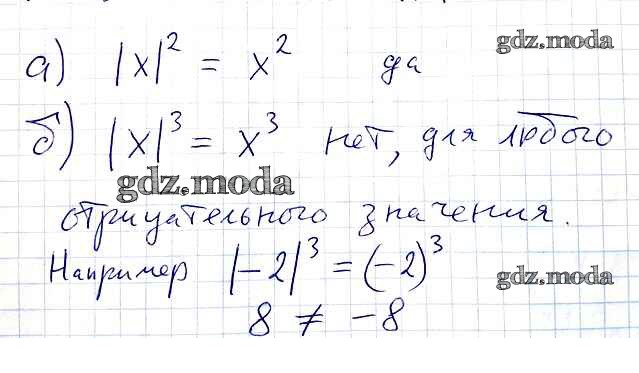 а) |x|² = x² да
gdz.moda
б) |x|³ = x³ нет, для любого
gdz.moda
gdz.moda
отрицательного значения.
Например |-2|³ = (-2)³
gdz.moda
8 ≠ -8